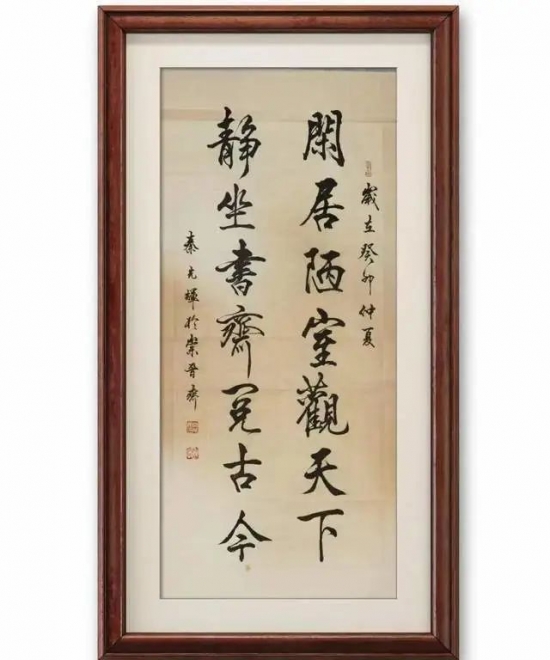 歲在癸卯仲夏
閑居陋室觀天下
靜坐書齋閱古今
秦允輝於崇晉齋